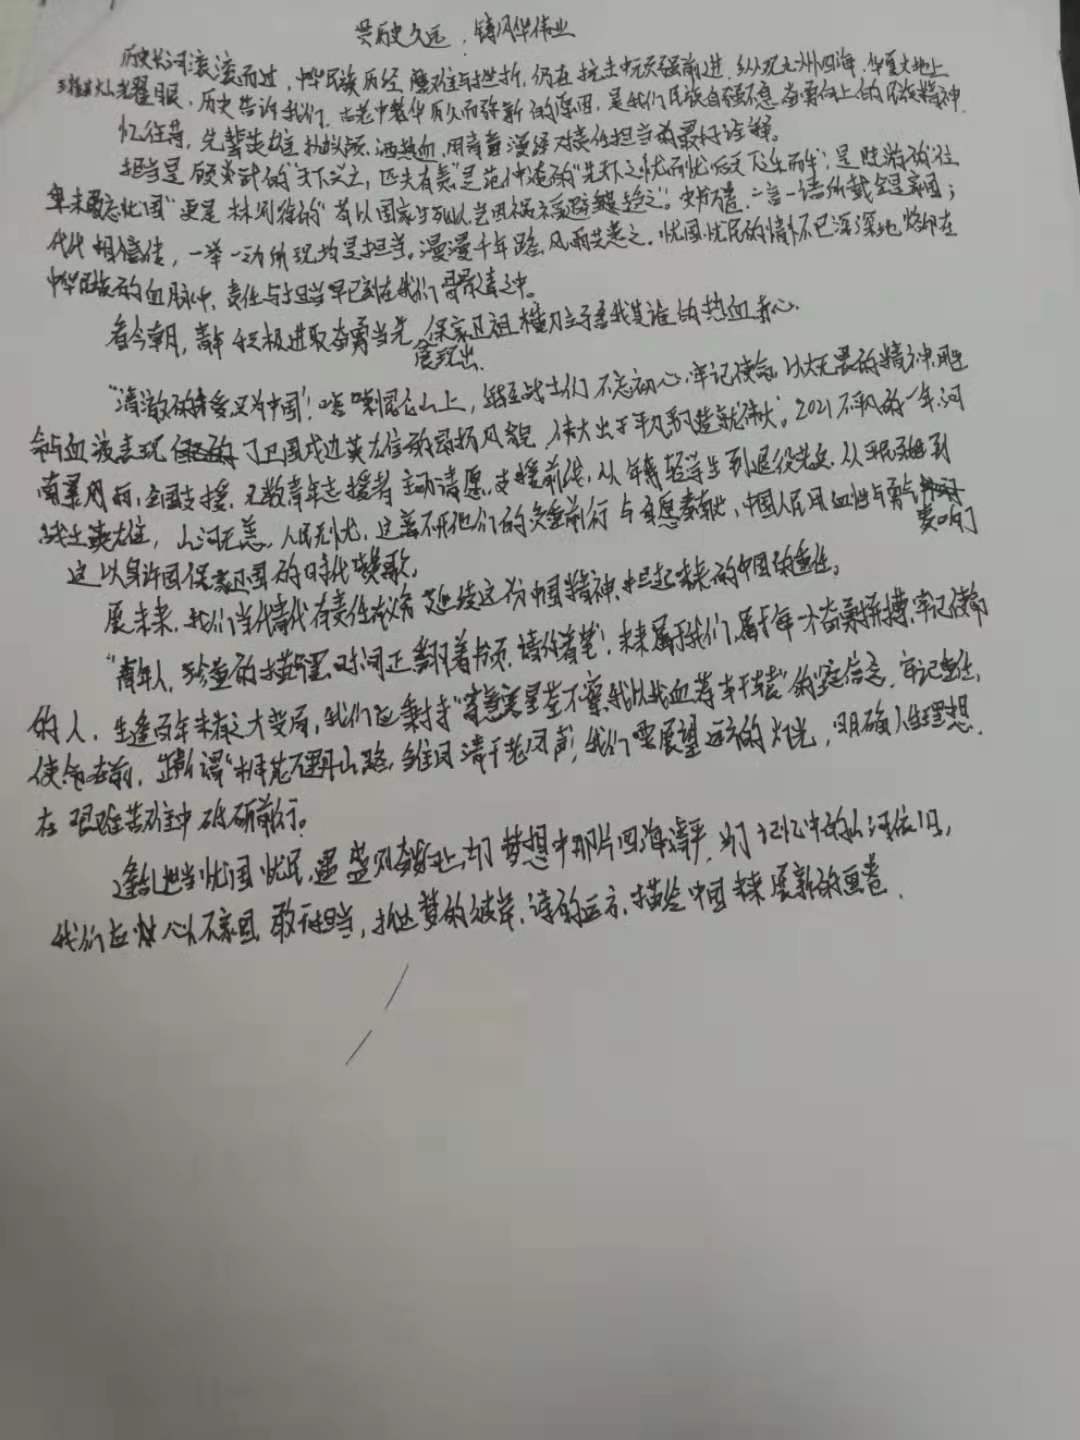 历史久远,铸风华伟业
历史长河滚滚而过,中华民族历经磨难与挫折,仍在抗击中顽强前进,纵观九州四海,华夏大地上
光耀眼,历史告诉我们,古老中华历久而弥新的原因,是我们民族自强不息,奋勇向上的民族精神.
忆往昔,先辈英雄抛头颅,洒热血,用青春漫经对责任担当的最好诠释。
担当是顾炎武的"天下兴亡,匹夫有责"是范仲淹的"先天下之忧而忧后天下之乐而乐",是陆游的"位
卑未敢忘忧国"更是林则徐的"苟以国家生死以岂因祸福避趋之"。一言一语所载全是家国;
代代相传,一举一动所现均是担当。漫漫千年路,风雨共患之.忧国忧民的情怀已深深地烙印在
中华民族的血脉中,责任与担当早已刻在我们骨子之中。
看今朝,青年积极进取奋勇当先,展现出保家卫祖舍我其谁的热血赤心.
"清澈的爱只为中国"!喀喇昆仑山上,战士们不忘初心,牢记使命,以大无畏的精神,用生
命与血液表现了卫国戍边英雄的昂扬风貌,伟大出于平凡,平凡造就伟大;2021不平凡的一年,河
南暴雨,全国支援.无数青年志援者主动请愿,支援前线,从年轻学生到退役老兵,从平民到
战士英雄,山河无恙,人民无忧,这离不开他们的负重前行与自愿奉献,中国人民用血性与勇气奏响了
这以身许国保家卫国的时代赞歌,
展未来,我们当代青年有责任义务延续这份中国精神,担起未来的中国的重任,
"青年人,珍重的描写吧,时间正翻着书页,请你着笔"!未来属于我们,属于年才奋勇拼搏,牢记使命
的人,生逢百年未有之大变局,我们应秉持"寄意寒星荃不察,我以我血荐轩辕"的坚定信念,牢记重任,
使命在前,正所谓"桐花万里丹山路,雏凤清于老凤声",我们要展望远方的灯光,明确人生理想.
在艰难苦难中砥砺前行。
逢乱世当忧国忧民,遇盛况奋发向上,为了梦想中那片四海清平,为了记忆中的山河依旧,
我们应敢于担当,抵达梦的彼岸,诗的远方,描绘中国未来展新的画卷.